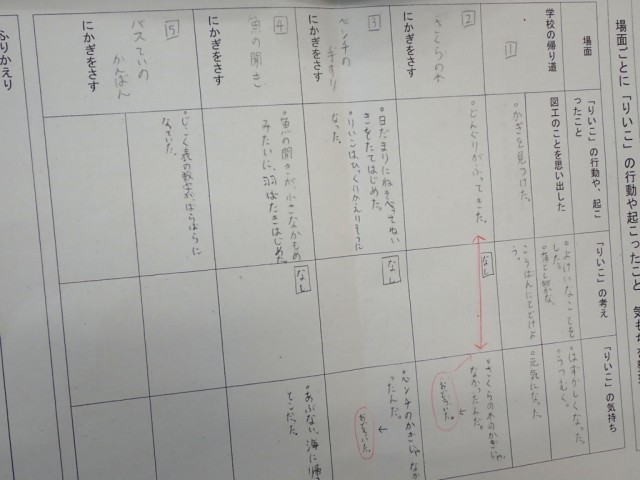 場面ごとに「りいこ」の行動や起こったこと
場面
「りいこ」の行動や、起こ
ったこと
「りいこ」の考え
「りいこ」の気持ち
学校の帰り道
図工のことを思い出した
。よけいなことを
した。
。はずかしくなった。
。うつむく。
1
。かぎを見つけた。
。落とし物かな。
こうばんにとどけよ
う。
。元気になった。
2
さくらの木
にかぎをさす
。どんぐりがふってきた。
なし
。さくらの木のかぎじゃ、
なかったんだ。
←
おどろいた。
3
ベンチの
手すり
にかぎをさす
。日だまりにねそべってねい
きをたてはじめた。
。りいこはひっくりかえりそうに
なった。
なし
。ベンチのかぎじゃなか
ったんだ。
←
おどろいた。
4
魚の開き
にかぎをさす
。魚の開きが、小さなかもめ
みたいに、羽ばたきはじめた。
なし
。あぶない、海に帰
5
バスていの
かんばん
にかぎをさす
。じこく表の数字が、ばらばらに
なっていた。
ふりかえり